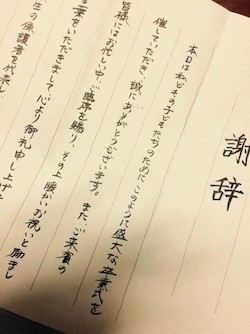 謝辞
本日は私どもの子どもたちのためにこのように盛大な卒業式を
催していただき、誠にありがとうございます。また、ご来賓の
皆様にはお忙しい中、ご臨席を賜り、その上 暖かいお祝いと励まし
葉をいただきまして、心より御礼申し上げ
生の保護者を代表し